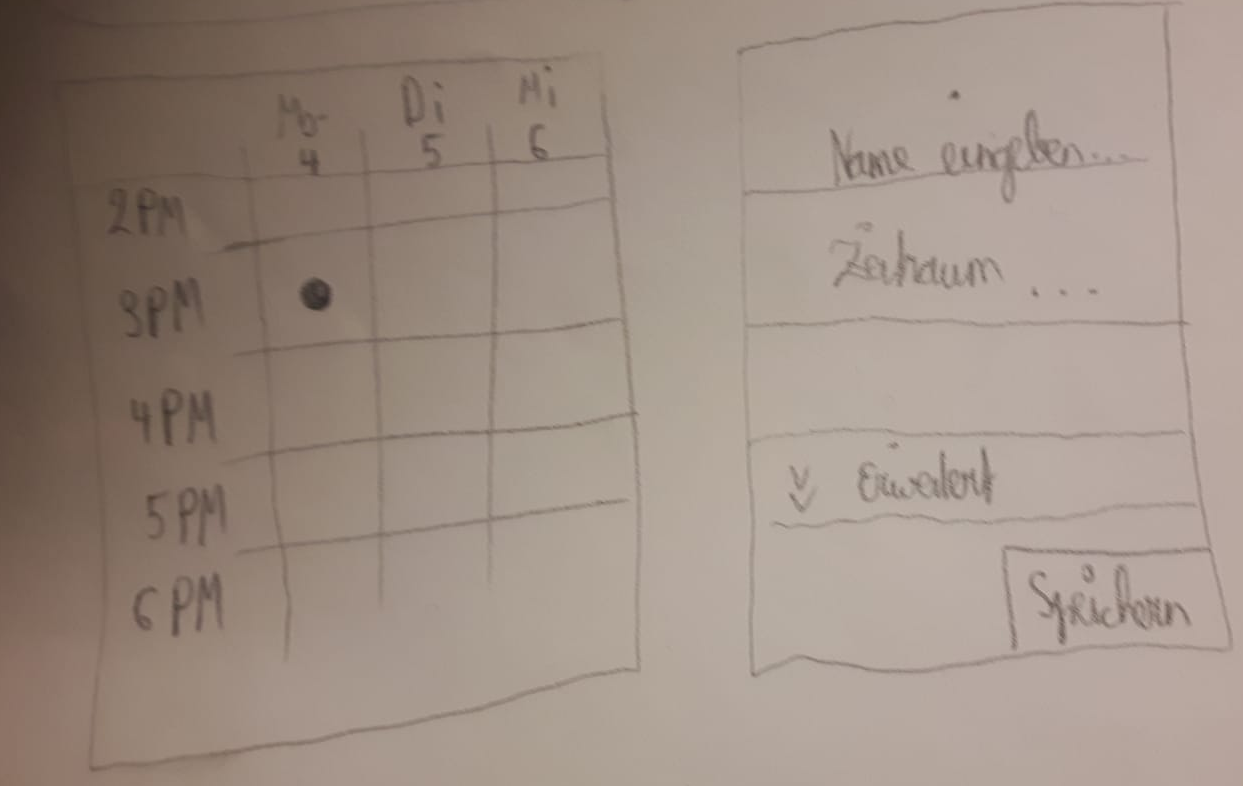 Mo Di Mi
4 5 6
2PM
3PM
4PM
5PM
6PM
Name eingeben...
Zeitraum ...
Erweitert
Speichern